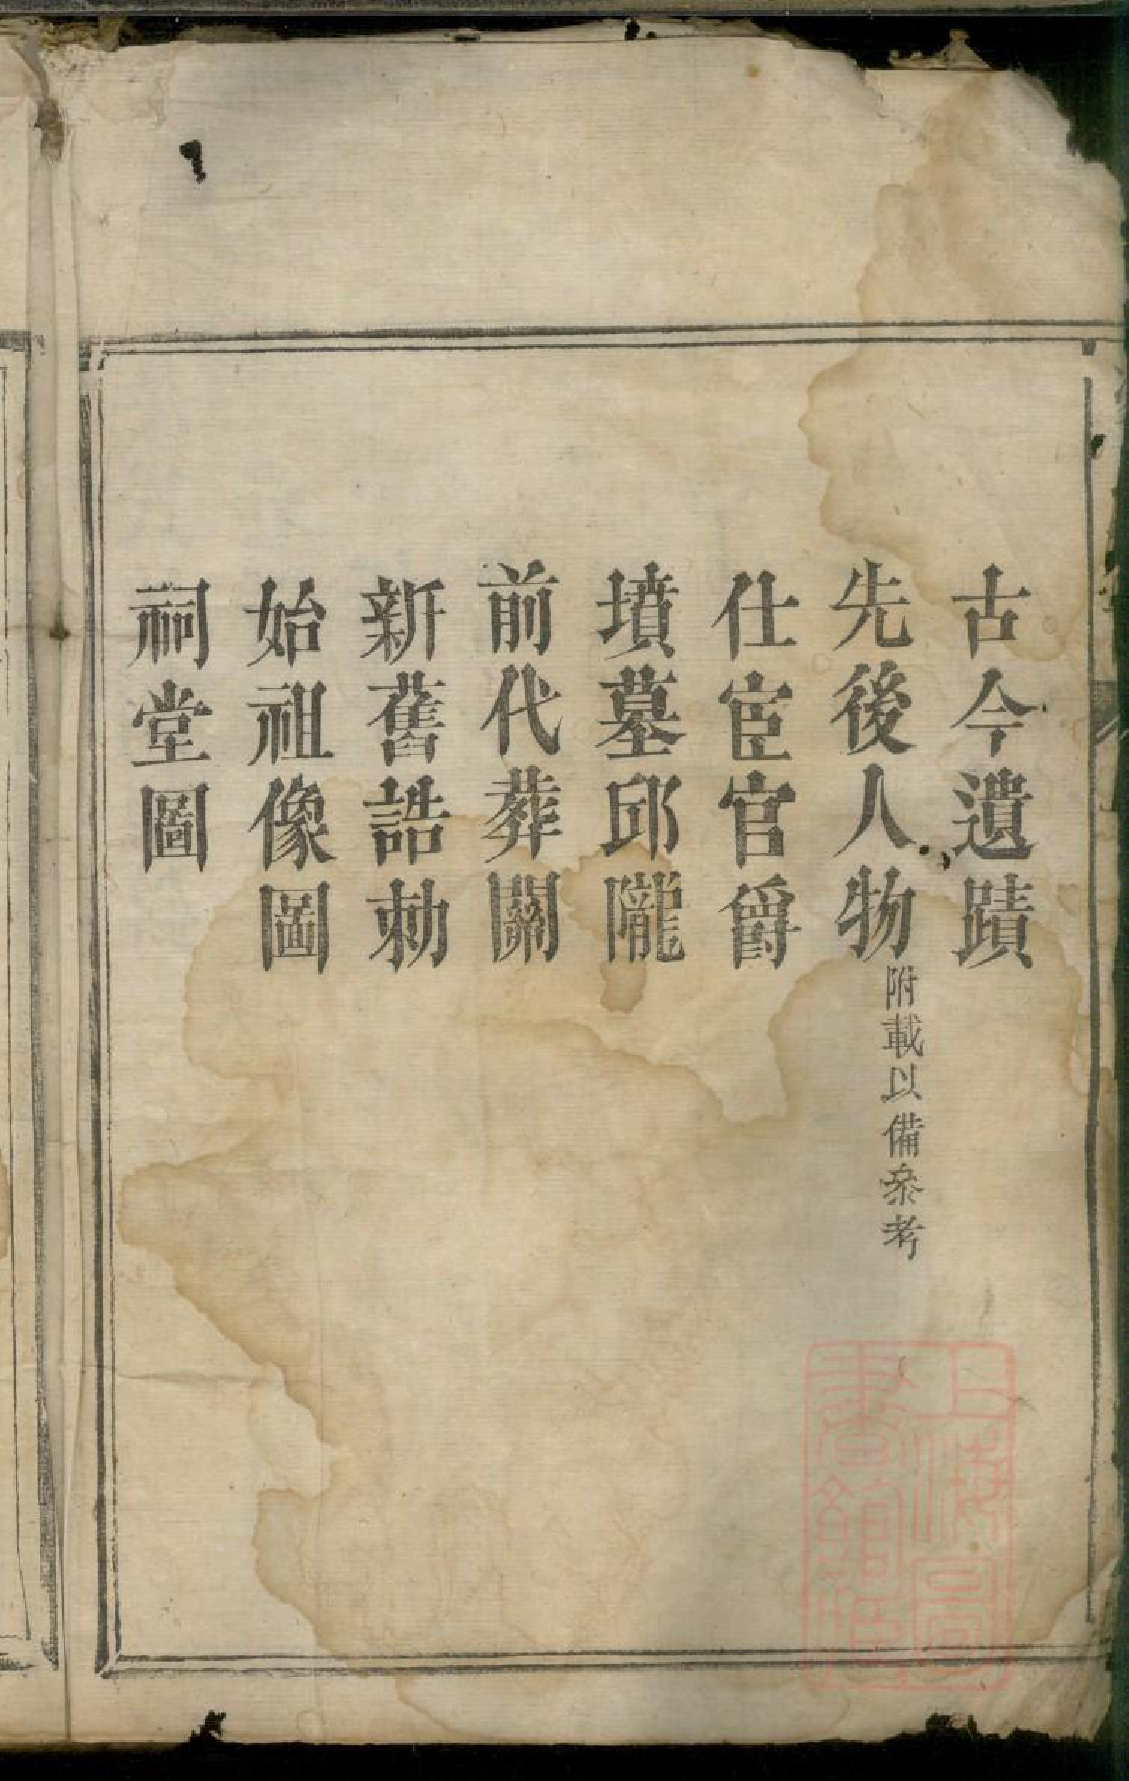 古今遺蹟
先後人物附載以備叅考
仕宦官爵
墳墓邱隴
前代葬關
新舊誥勅
始祖像圖
祠堂圖
上海圖
書館藏